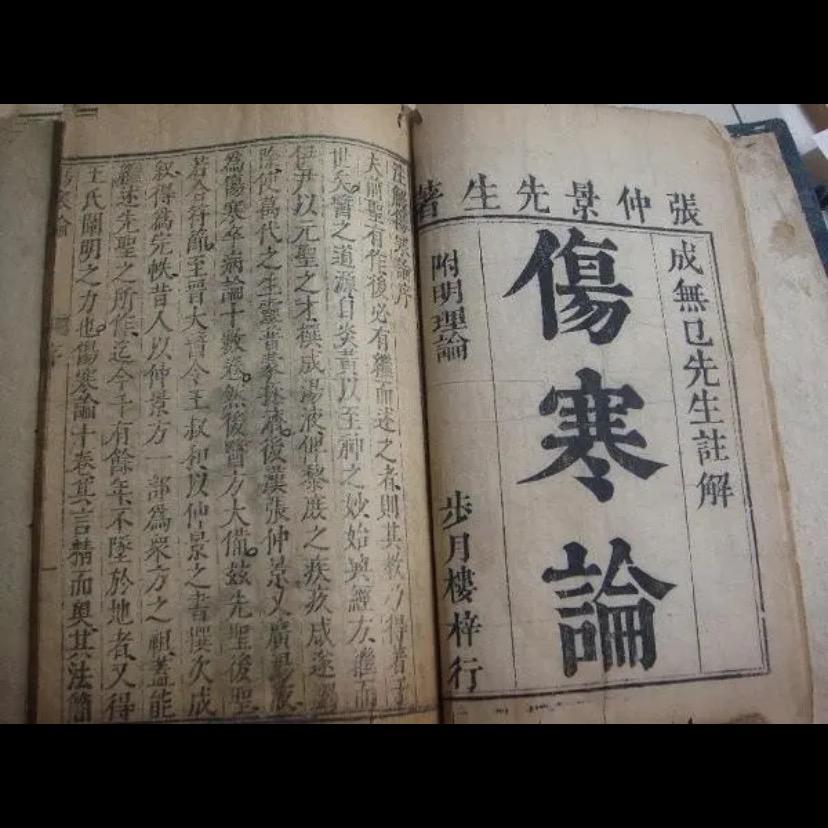 張仲景先生著
成無已先生註解
傷寒論
附明理論
步月樓梓行
註解傷寒論序
夫前聖有作後必有繼而述之者則其教乃得著于
世矣醫之道源自炎黃以至神之妙始興經方繼而
伊尹以元聖之才撰成湯液俾黎庶之疾疢咸遂蠲
除使萬代之生靈普蒙拯濟後漢張仲景又廣湯液
為傷寒卒病論十數卷然後醫方大備茲先聖後聖
若合符節至晉太醫令王叔和以仲景之書撰次成
敘得為完帙昔人以仲景方一部為眾方之祖蓋能
繼述先聖之所作迄今千有餘年不墜於地者又得
王氏闡明之力也傷寒論十卷其言精而奧其法簡
傷寒論 序